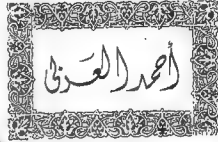 أحمد العدلي